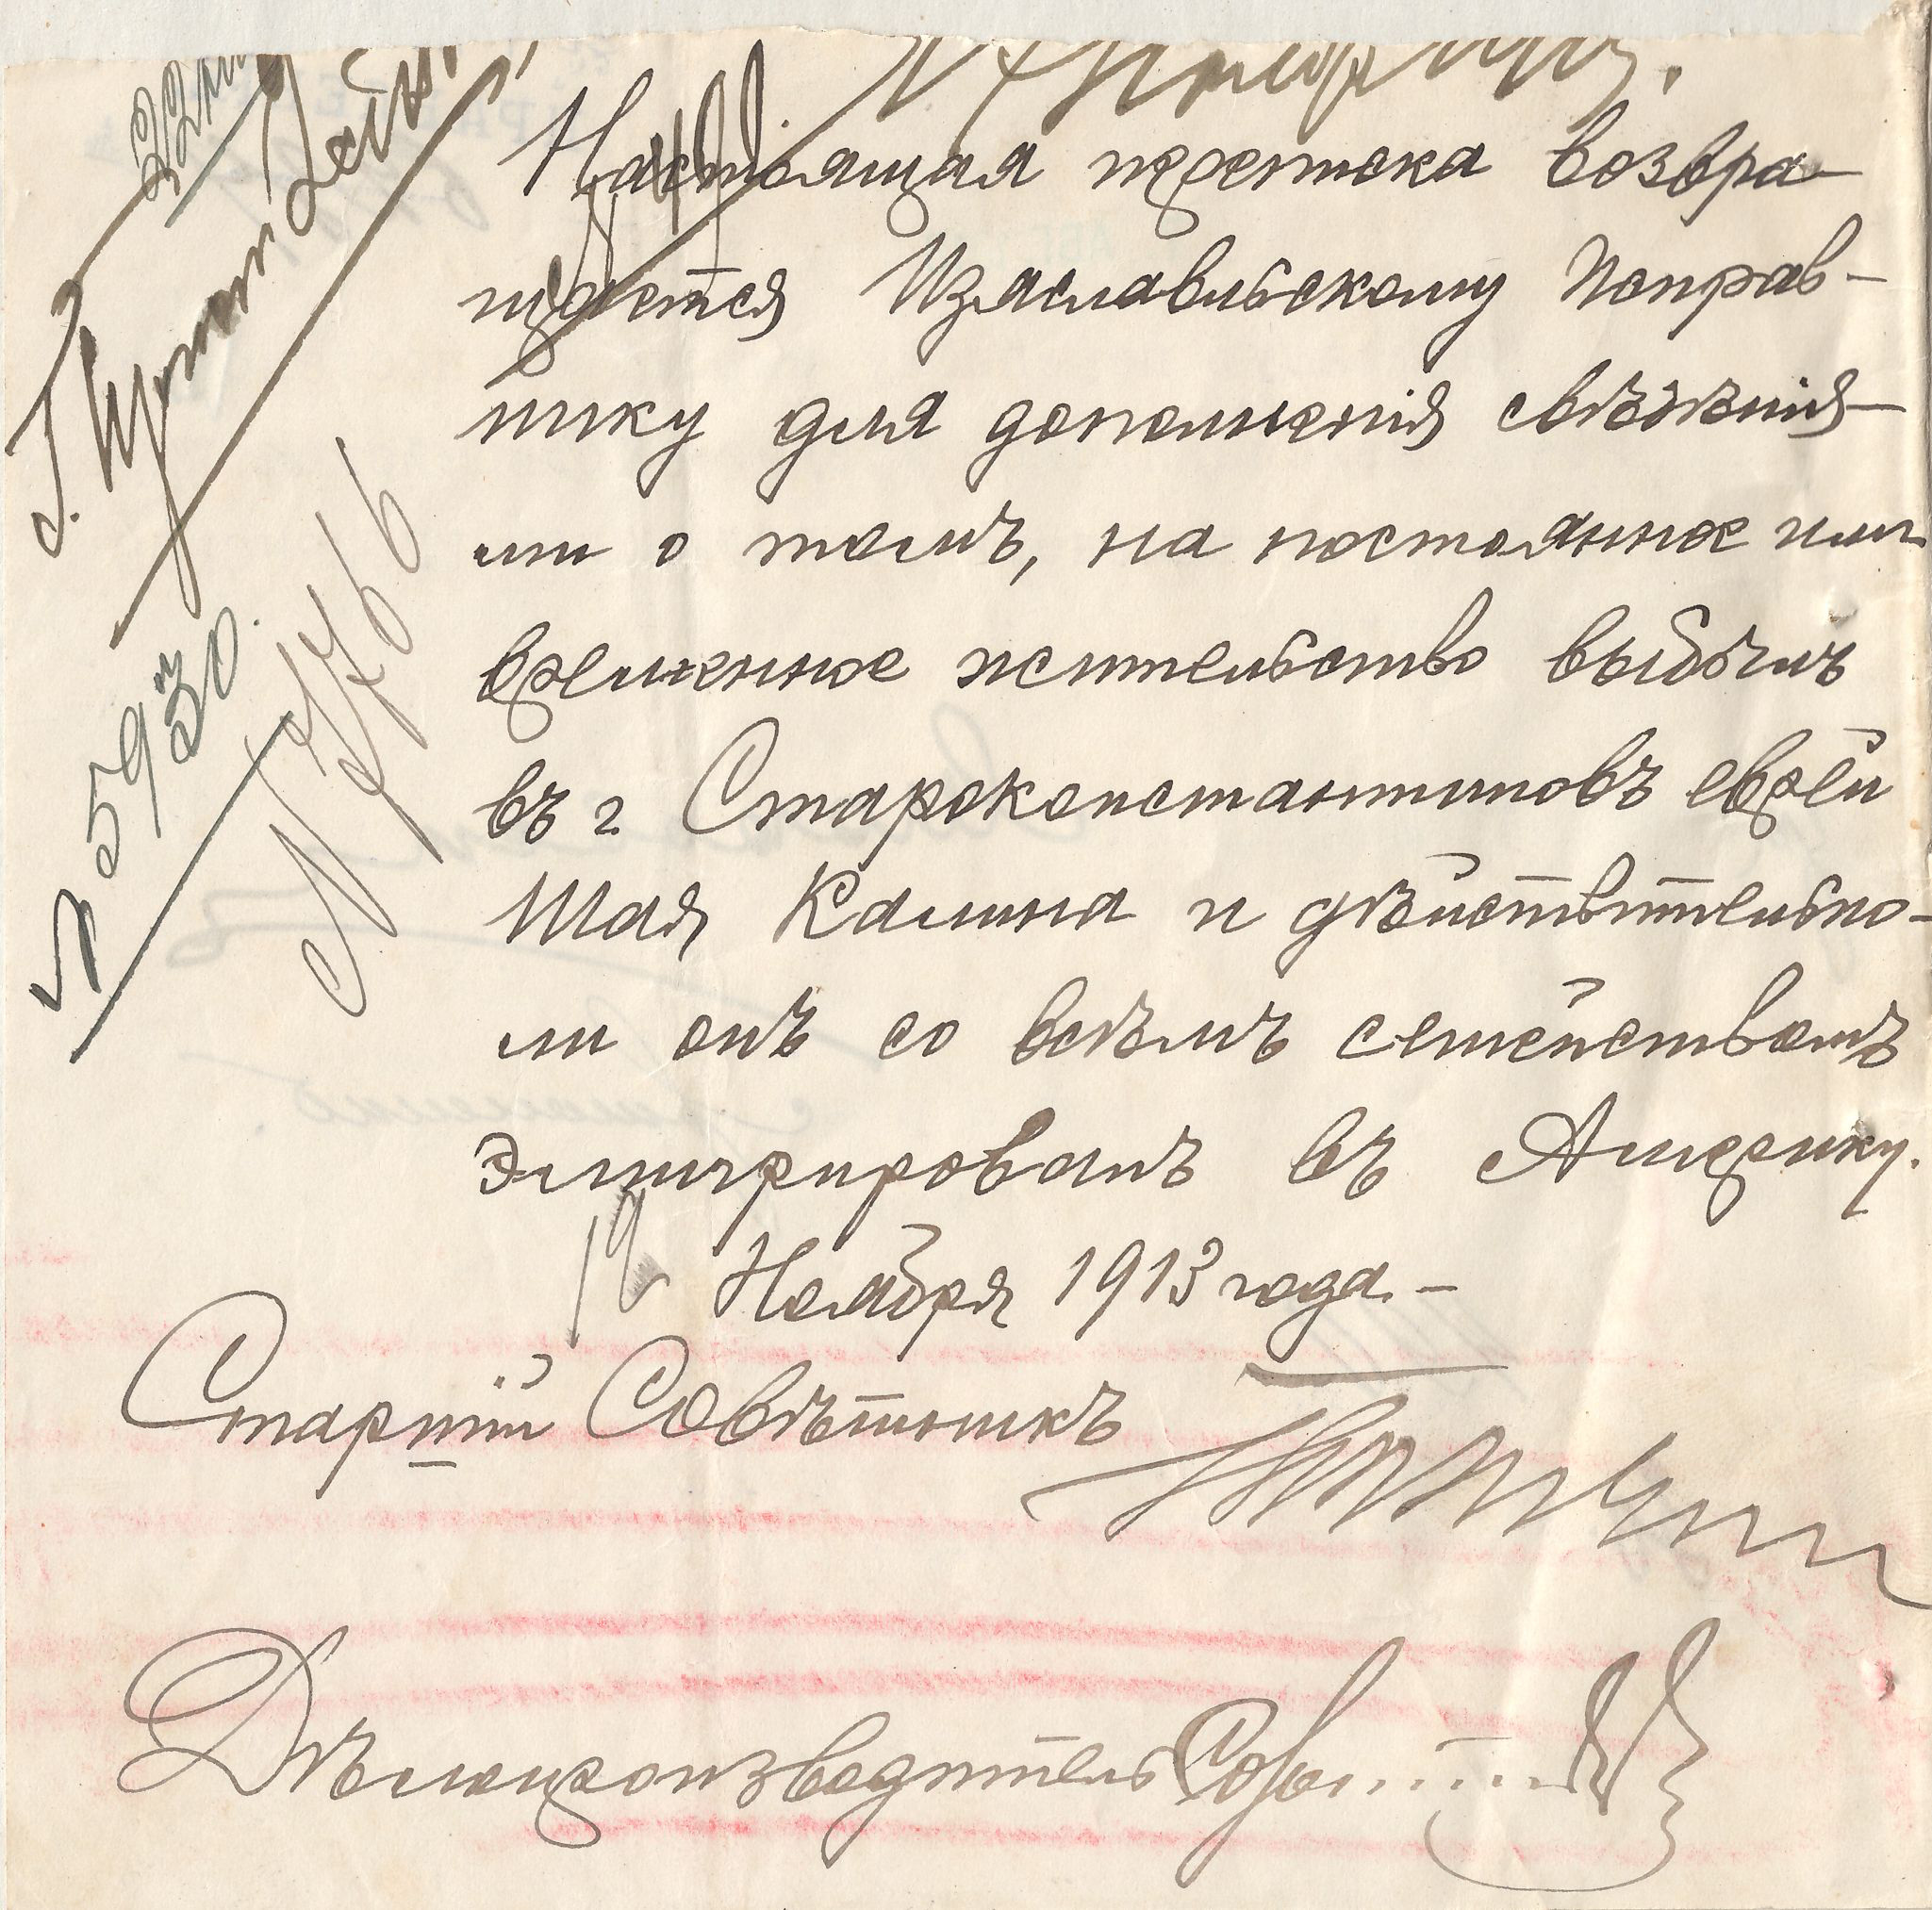 Настоящая переписка возвра-
щается Изяславльскому Исправ-
нику для дополненія свѣдѣнія-
ми о томъ, на постоянное или
временное жительство выбылъ
въ г. Староконстантиновъ еврей
Шая Калина и дѣйствительно-
ли онъ со всѣмъ семействомъ
эмигрировалъ въ Америку.
12 Ноября 1913 года. –
Старшій Совѣтникъ
Дѣлопроизводитель
№ 5930.
№